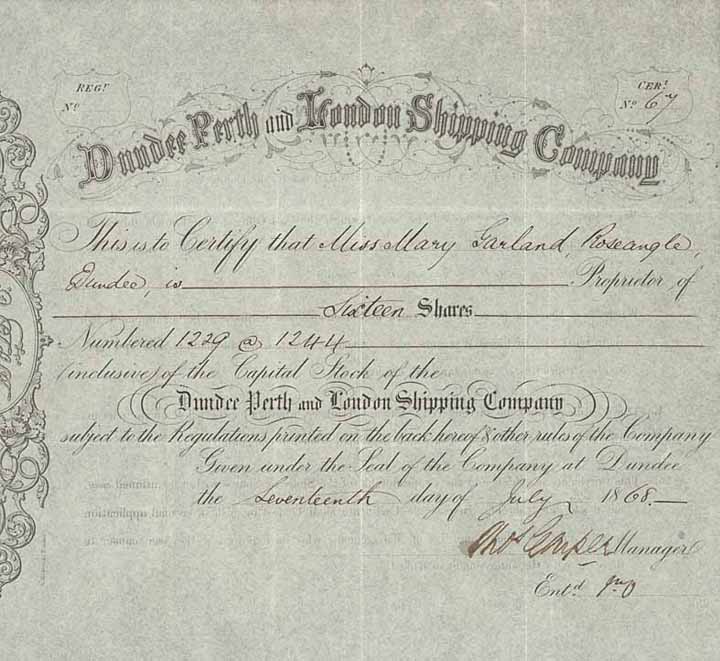 REGR
No
CERT
No 67
Dundee Perth and London Shipping Company
This is to Certify that Miss Mary Garland, Roseangle,
Dundee, is Proprietor of
Sixteen Shares
Numbered 1229 @ 1244
(inclusive) of the Capital Stock of the
Dundee Perth and London Shipping Company
subject to the Regulations printed on the back hereof & other rules of the Company
Given under the Seal of the Company at Dundee
the Seventeenth day of July 1868.
Thos Manager
Entd